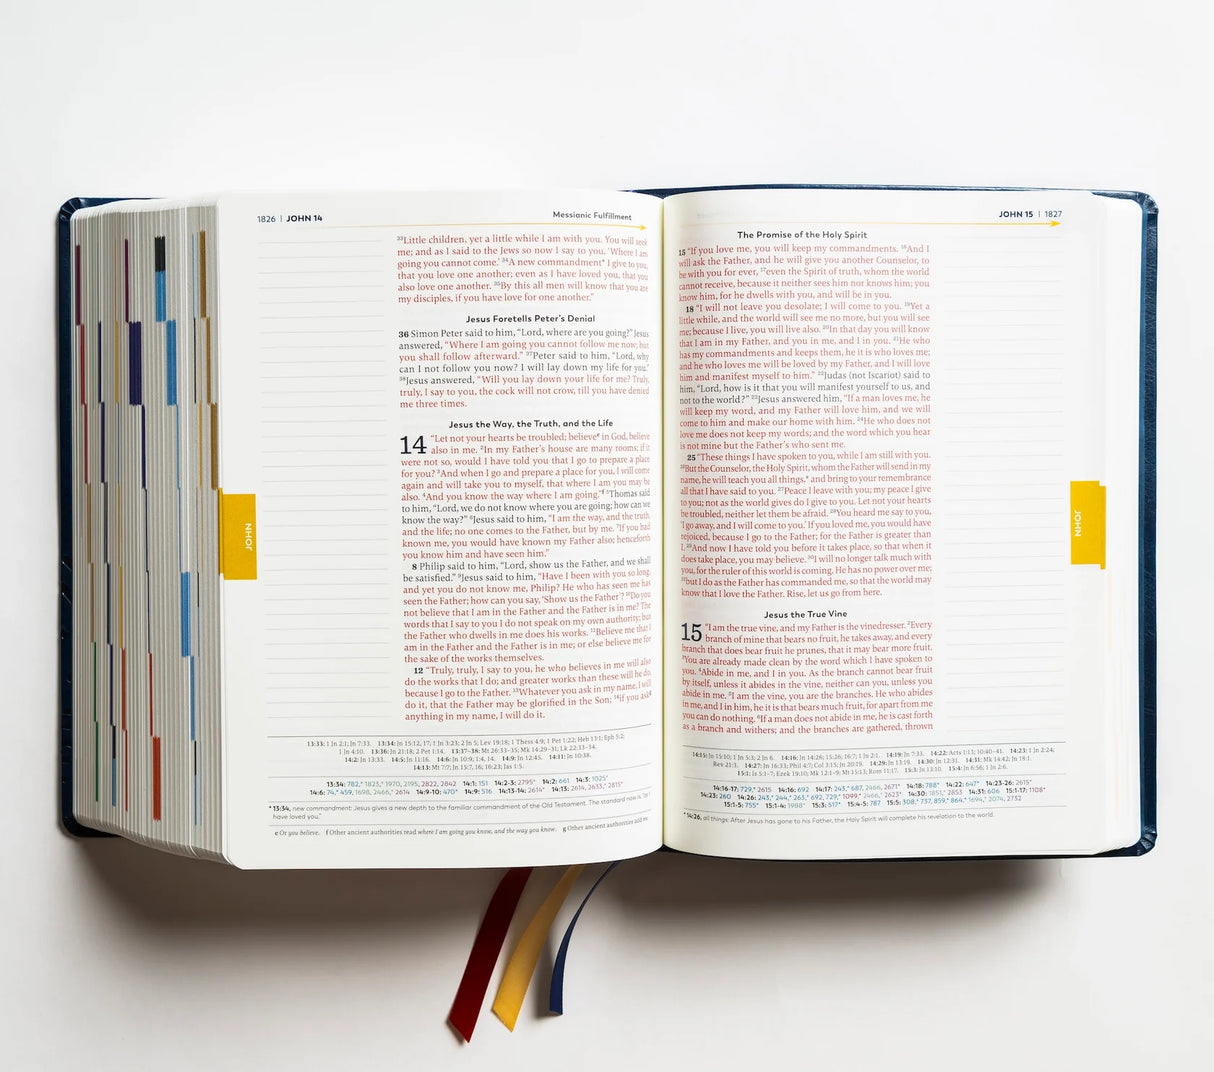 1826 | JOHN 14
Messianic Fulfillment
³³Little children, yet a little while I am with you. You will seek
me; and as I said to the Jews so now I say to you, ‘Where I am
going you cannot come.’ ³⁴A new commandment* I give to you,
that you love one another; even as I have loved you, that you
also love one another. ³⁵By this all men will know that you are
my disciples, if you have love for one another.”
Jesus Foretells Peter’s Denial
36 Simon Peter said to him, “Lord, where are you going?” Jesus
answered, “Where I am going you cannot follow me now; but
you shall follow afterward.” ³⁷Peter said to him, “Lord, why
can I not follow you now? I will lay down my life for you.”
³⁸Jesus answered, “Will you lay down your life for me? Truly,
truly, I say to you, the cock will not crow, till you have denied
me three times.
Jesus the Way, the Truth, and the Life
14 “Let not your hearts be troubled; believeᵉ in God, believe
also in me. ²In my Father’s house are many rooms; if it
were not so, would I have told you that I go to prepare a place
for you? ³And when I go and prepare a place for you, I will come
again and will take you to myself, that where I am you may be
also. ⁴And you know the way where I am going.”ᶠ ⁵Thomas said
to him, “Lord, we do not know where you are going; how can we
know the way?” ⁶Jesus said to him, “I am the way, and the truth,
and the life; no one comes to the Father, but by me. ⁷If you had
known me, you would have known my Father also; henceforth
you know him and have seen him.”
8 Philip said to him, “Lord, show us the Father, and we shall
be satisfied.” ⁹Jesus said to him, “Have I been with you so long,
and yet you do not know me, Philip? He who has seen me has
seen the Father; how can you say, ‘Show us the Father’? ¹⁰Do you
not believe that I am in the Father and the Father is in me? The
words that I say to you I do not speak on my own authority; but
the Father who dwells in me does his works. ¹¹Believe me that I
am in the Father and the Father is in me; or else believe me for
the sake of the works themselves.
12 “Truly, truly, I say to you, he who believes in me will also
do the works that I do; and greater works than these will he do,
because I go to the Father. ¹³Whatever you ask in my name, I will
do it, that the Father may be glorified in the Son; ¹⁴if you askᵍ
anything in my name, I will do it.
13:33: 1 Jn 2:1; Jn 7:33. 13:34: Jn 15:12, 17; 1 Jn 3:23; 2 Jn 5; Lev 19:18; 1 Thess 4:9; 1 Pet 1:22; Heb 13:1; Eph 5:2;
1 Jn 4:10. 13:36: Jn 21:18; 2 Pet 1:14. 13:37–38: Mt 26:33–35; Mk 14:29–31; Lk 22:33–34.
14:2: Jn 13:33. 14:5: Jn 11:16. 14:6: Jn 10:9; 1:4, 14. 14:9: Jn 12:45. 14:11: Jn 10:38.
14:13: Mt 7:7; Jn 15:7, 16; 16:23; Jas 1:5.
13:34: 782,* 1823,* 1970, 2195, 2822, 2842 14:1: 151 14:2-3: 2795* 14:2: 661 14:3: 1025*
14:6: 74,* 459, 1698, 2466,* 2614 14:9-10: 470* 14:9: 516 14:13-14: 2614* 14:13: 2614, 2633,* 2815*
* 13:34, new commandment: Jesus gives a new depth to the familiar commandment of the Old Testament. The standard now is “as I
have loved you.”
e Or you believe. f Other ancient authorities read where I am going you know, and the way you know. g Other ancient authorities add me.
JOHN
JOHN 15 | 1827
The Promise of the Holy Spirit
15 “If you love me, you will keep my commandments. ¹⁶And I
will ask the Father, and he will give you another Counselor, to
be with you for ever, ¹⁷even the Spirit of truth, whom the world
cannot receive, because it neither sees him nor knows him; you
know him, for he dwells with you, and will be in you.
18 “I will not leave you desolate; I will come to you. ¹⁹Yet a
little while, and the world will see me no more, but you will see
me; because I live, you will live also. ²⁰In that day you will know
that I am in my Father, and you in me, and I in you. ²¹He who
has my commandments and keeps them, he it is who loves me;
and he who loves me will be loved by my Father, and I will love
him and manifest myself to him.” ²²Judas (not Iscariot) said to
him, “Lord, how is it that you will manifest yourself to us, and
not to the world?” ²³Jesus answered him, “If a man loves me, he
will keep my word, and my Father will love him, and we will
come to him and make our home with him. ²⁴He who does not
love me does not keep my words; and the word which you hear
is not mine but the Father’s who sent me.
25 “These things I have spoken to you, while I am still with you.
²⁶But the Counselor, the Holy Spirit, whom the Father will send in my
name, he will teach you all things,* and bring to your remembrance
all that I have said to you. ²⁷Peace I leave with you; my peace I give
to you; not as the world gives do I give to you. Let not your hearts
be troubled, neither let them be afraid. ²⁸You heard me say to you,
‘I go away, and I will come to you.’ If you loved me, you would have
rejoiced, because I go to the Father; for the Father is greater than
I. ²⁹And now I have told you before it takes place, so that when it
does take place, you may believe. ³⁰I will no longer talk much with
you, for the ruler of this world is coming. He has no power over me;
³¹but I do as the Father has commanded me, so that the world may
know that I love the Father. Rise, let us go from here.
Jesus the True Vine
15 “I am the true vine, and my Father is the vinedresser. ²Every
branch of mine that bears no fruit, he takes away, and every
branch that does bear fruit he prunes, that it may bear more fruit.
³You are already made clean by the word which I have spoken to
you. ⁴Abide in me, and I in you. As the branch cannot bear fruit
by itself, unless it abides in the vine, neither can you, unless you
abide in me. ⁵I am the vine, you are the branches. He who abides
in me, and I in him, he it is that bears much fruit, for apart from me
you can do nothing. ⁶If a man does not abide in me, he is cast forth
as a branch and withers; and the branches are gathered, thrown
14:15: Jn 15:10; 1 Jn 5:3; 2 Jn 6. 14:16: Jn 14:26; 15:26; 16:7; 1 Jn 2:1. 14:19: Jn 7:33. 14:22: Acts 1:13; 10:40–41. 14:23: 1 Jn 2:24;
Rev 21:3. 14:27: Jn 16:33; Phil 4:7; Col 3:15; Jn 20:19. 14:29: Jn 13:19. 14:30: Jn 12:31. 14:31: Mk 14:42; Jn 18:1.
15:1: Is 5:1–7; Ezek 19:10; Mk 12:1–9; Mt 15:13; Rom 11:17. 15:3: Jn 13:10. 15:4: Jn 6:56; 1 Jn 2:6.
14:16-17: 729,* 2615 14:16: 692 14:17: 243,* 687, 2466, 2671* 14:18: 788* 14:22: 647* 14:23-26: 2615*
14:23: 260 14:26: 243,* 244,* 263,* 692, 729,* 1099,* 2466,* 2623* 14:30: 1851,* 2853 14:31: 606 15:1-17: 1108*
15:1-5: 755* 15:1-4: 1988* 15:3: 517* 15:4-5: 787 15:5: 308,* 737, 859,* 864,* 1694,* 2074, 2732
* 14:26, all things: After Jesus has gone to his Father, the Holy Spirit will complete his revelation to the world.
JOHN